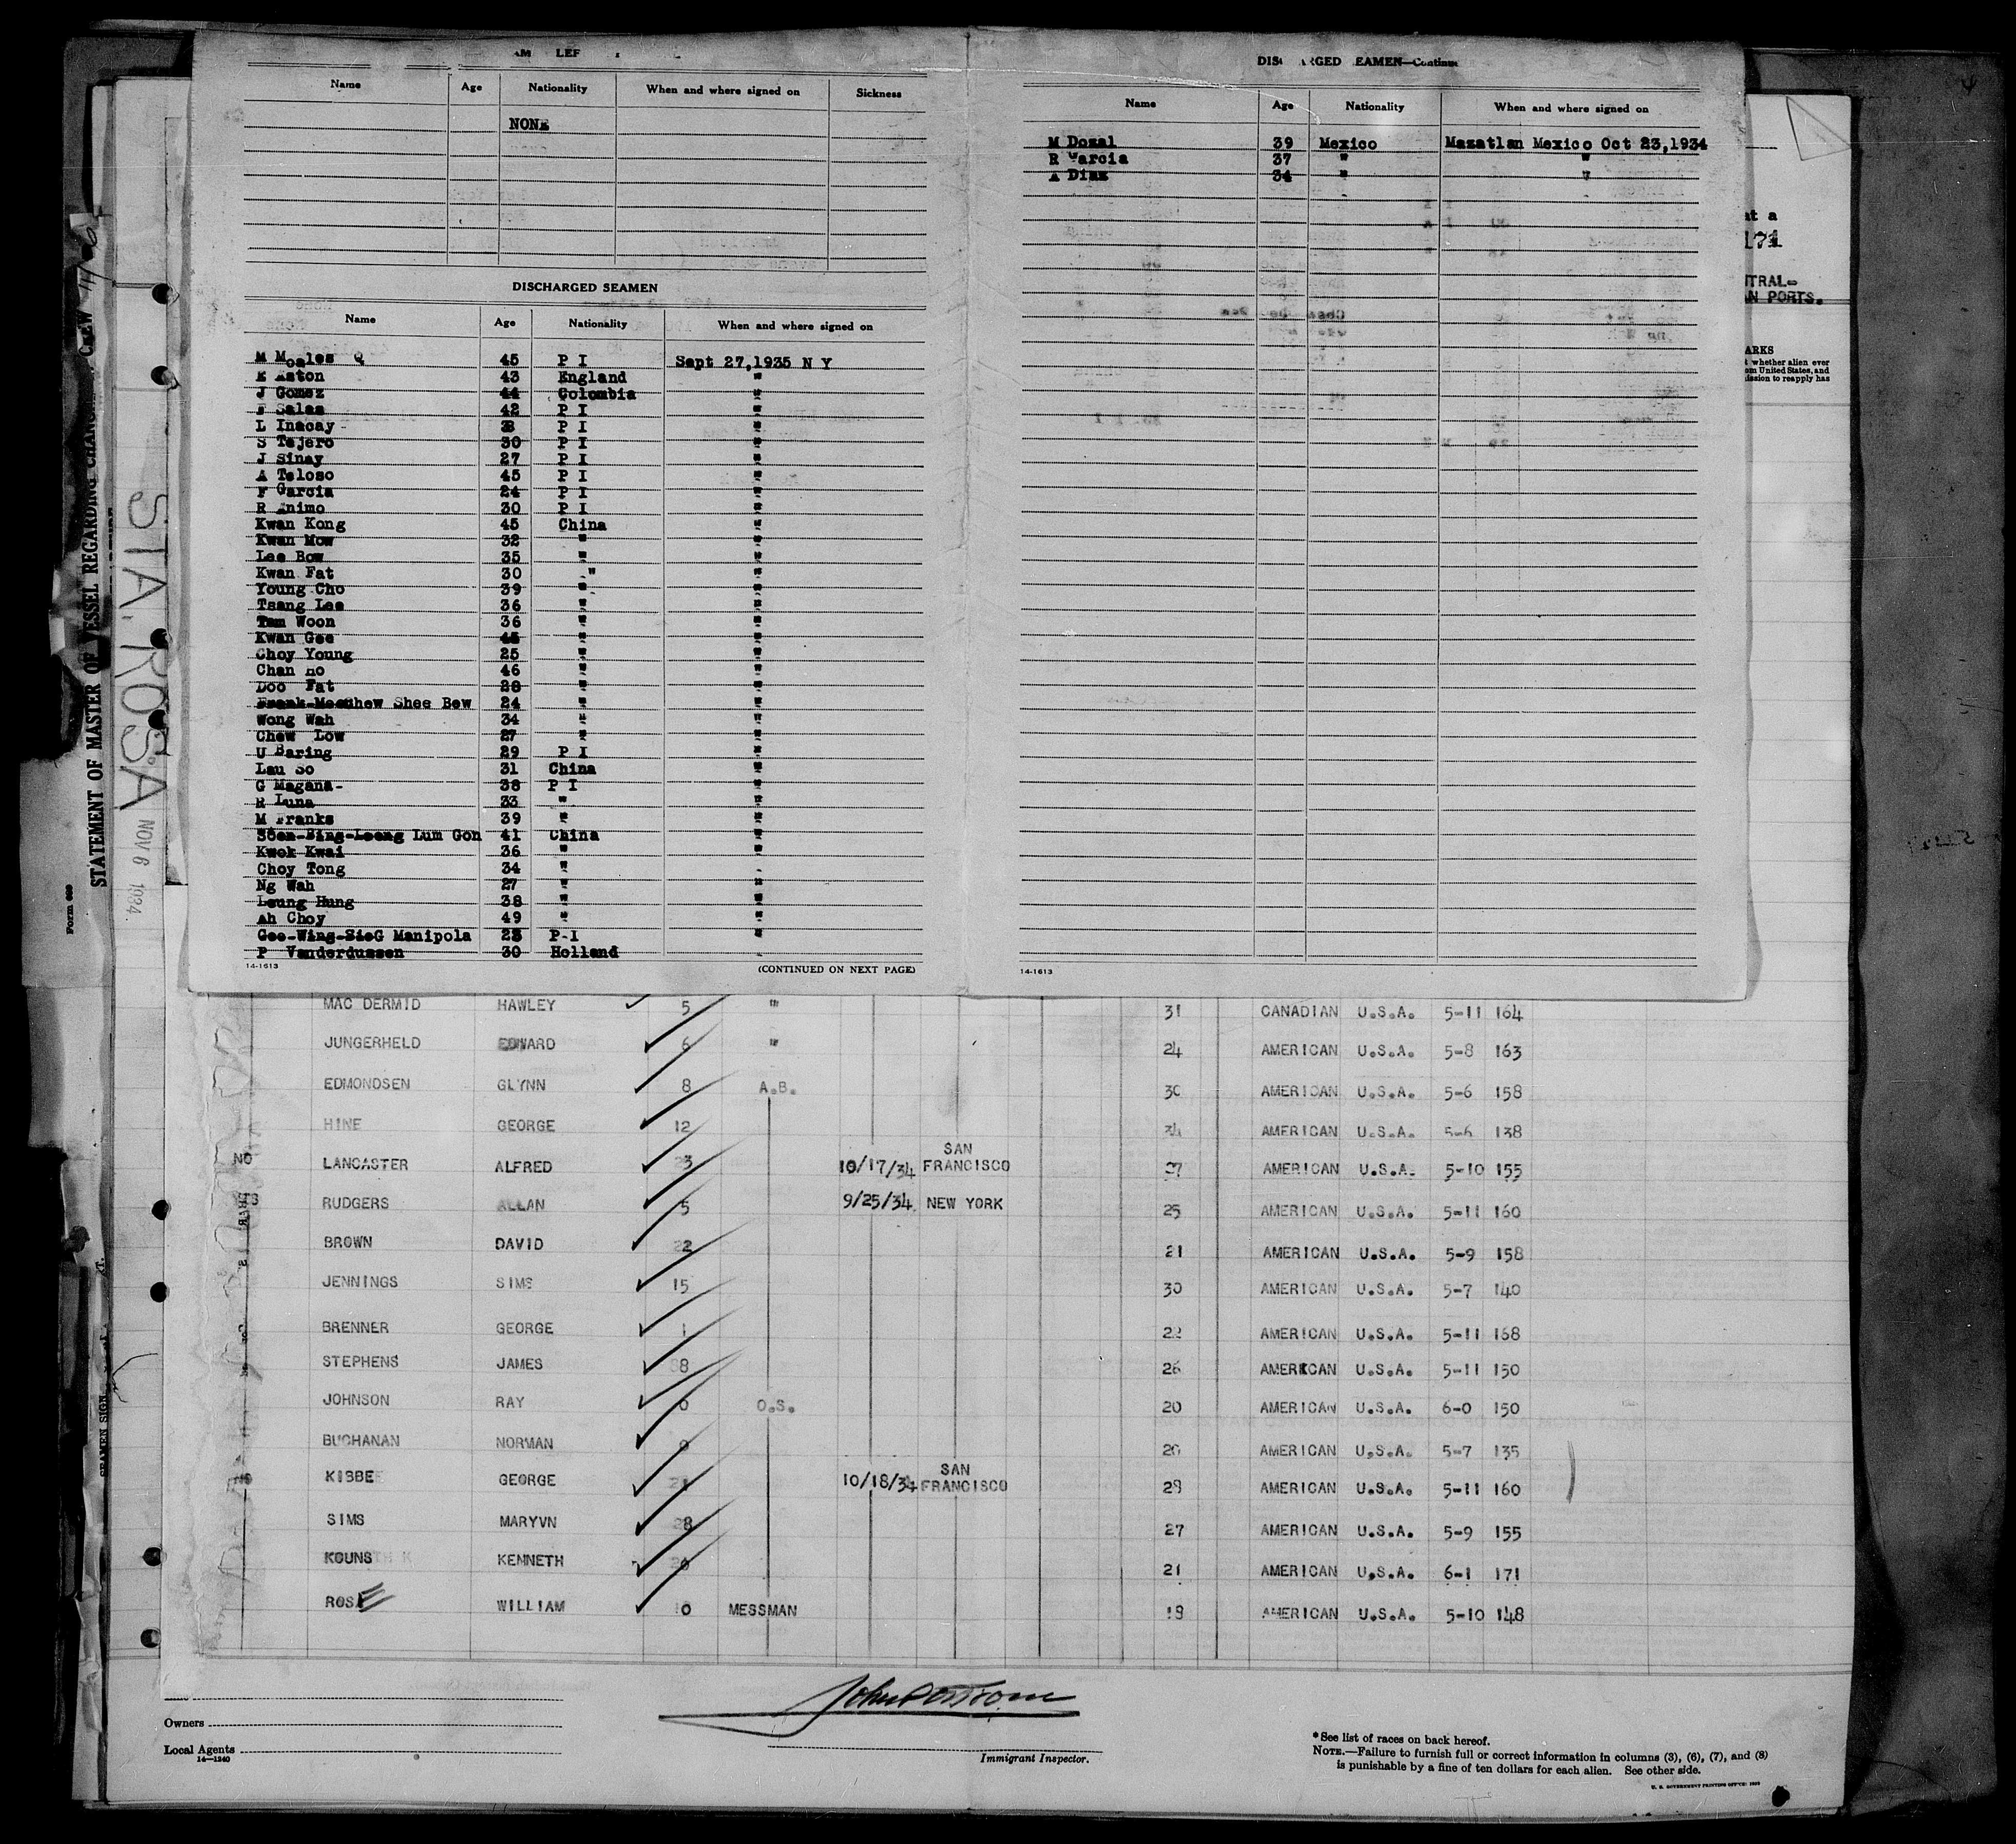 Name Age Nationality When and where signed on Sickness
NONE
DISCHARGED SEAMEN
Name Age Nationality When and where signed on
M Moales 45 P I Sept 27,1935 N Y
E Aston 43 England "
J Gomez 44 Colombia "
F Salas 42 P I "
L Inacay P I "
S Tejero 30 P I "
J Sinay 27 P I "
A Teloso 45 P I "
F Garcia 24 P I "
R Animo 30 P I "
Kwan Kong 45 China "
Kwan Mow 32 " "
Lee Bow 35 " "
Kwan Fat 30 " "
Young Cho 39 " "
Tsang Lee 36 " "
Tam Woon 36 " "
Kwan Gee 45 " "
Choy Young 25 " "
Chan Ho 46 " "
Doo Fat 28 " "
Shee Bew 24 " "
Wong Wah 34 " "
Chew Low 27 " "
U Baring 29 P I "
Lau So 31 China "
G Magana- 38 P I "
R Luna 33 " "
M Franks 39 " "
Lum Gon 41 China "
Kwok Kwai 36 " "
Choy Tong 34 "
Ng Wah 27 " "
Leung Hung 38 " "
Ah Choy 49 " "
Gee-Wing-SieG Manipola 23 P-I "
P Vanderdussen 30 Holland
14-1613 (CONTINUED ON NEXT PAGE)
DISCHARGED SEAMEN—Continu
Name Age Nationality When and where signed on
M Dozal 39 Mexico Mazatlan Mexico Oct 23,1934
R Garcia 37 " "
A Diaz 34 " "
14-1613
at a
171
NTRAL-
AN PORTS.
ARKS
t whether alien ever
om United States, and
ission to reapply has
STATEMENT OF MASTER OF VESSEL REGARDING CHANGES CREW
STA. ROSA NOV 6 1934
Form 689
SEAMEN SIGN
MAC DERMID HAWLEY 5 " 31 CANADIAN U.S.A. 5-11 164
JUNGERHELD EDWARD 6 " 24 AMERICAN U.S.A. 5-8 163
EDMONDSEN GLYNN 8 A.B. 30 AMERICAN U.S.A. 5-6 158
HINE GEORGE 12 34 AMERICAN U.S.A. 5-6 138
NO LANCASTER ALFRED 3 10/17/34 SAN FRANCISCO 37 AMERICAN U.S.A. 5-10 155
RUDGERS ALLAN 5 9/25/34 NEW YORK 25 AMERICAN U.S.A. 5-11 160
BROWN DAVID 22 21 AMERICAN U.S.A. 5-9 158
JENNINGS SIMS 15 30 AMERICAN U.S.A. 5-7 140
BRENNER GEORGE 1 22 AMERICAN U.S.A. 5-11 168
STEPHENS JAMES 8 26 AMERICAN U.S.A. 5-11 150
JOHNSON RAY 0 O.S. 20 AMERICAN U.S.A. 6-0 150
BUCHANAN NORMAN 0 20 AMERICAN U.S.A. 5-7 135
KIBBE GEORGE 21 10/18/34 SAN FRANCISCO 29 AMERICAN U.S.A. 5-11 160
SIMS MARYVN 28 27 AMERICAN U.S.A. 5-9 155
KOUNS KENNETH 21 AMERICAN U.S.A. 6-1 171
ROSE WILLIAM 0 MESSMAN 19 AMERICAN U.S.A. 5-10 148
Owners
Local Agents
14—1240
Immigrant Inspector.
*See list of races on back hereof.
NOTE.—Failure to furnish full or correct information in columns (3), (6), (7), and (8)
is punishable by a fine of ten dollars for each alien. See other side.